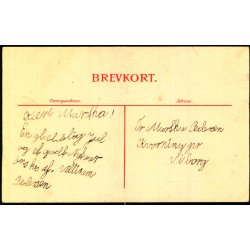 BREVKORT.
Correspondance. Adresse.
Kære Martha!
En glædelig Jul
og et godt Nytaar
ønskes af
Pedersen
Fr Martha Pedersen
pr
Viborg